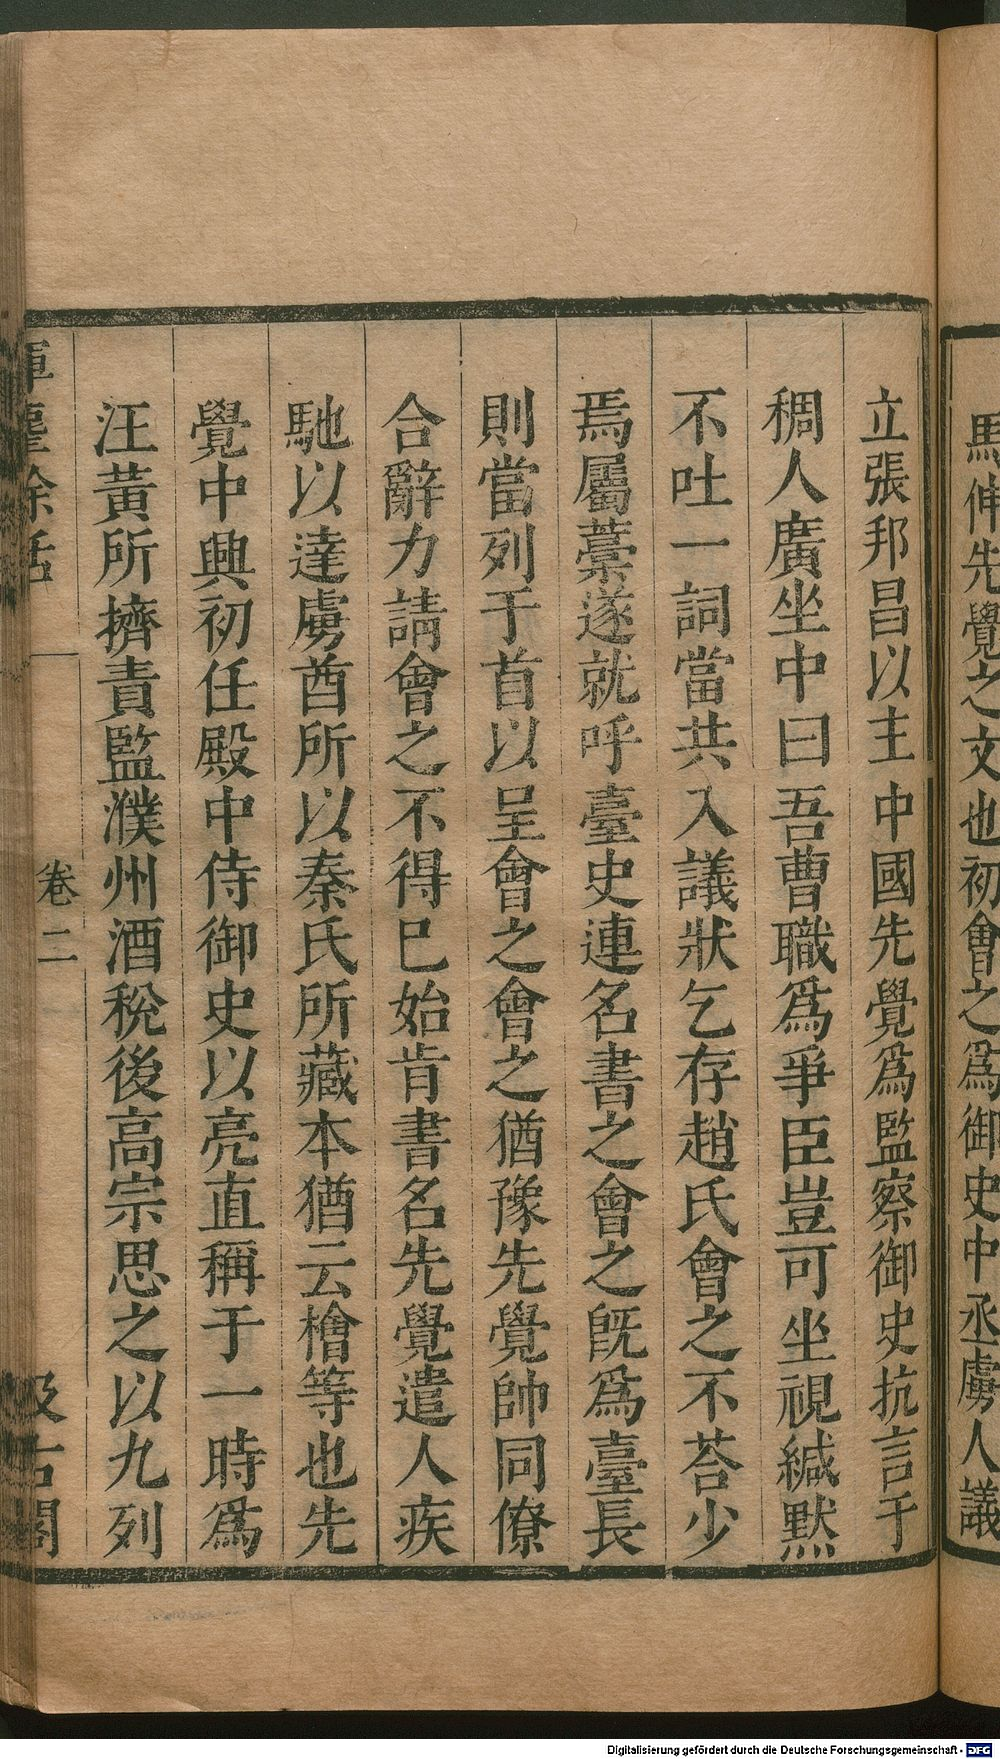 馬伸先覺之文也初會之爲御史中丞虜人議
立張邦昌以主中國先覺爲監察御史抗言于
稠人廣坐中曰吾曹職爲爭臣豈可坐視緘默
不吐一詞當共入議狀乞存趙氏會之不荅少
焉屬藁遂就呼臺史連名書之會之既爲臺長
則當列于首以呈會之會之猶豫先覺帥同僚
合辭力請會之不得已始肯書名先覺遣人疾
馳以達虜酋所以秦氏所藏本猶云檜等也先
覺中興初任殿中侍御史以亮直稱于一時爲
汪黃所擠責監濮州酒稅後高宗思之以九列
揮麈餘話
卷二
汲古閣
Digitalisierung gefördert durch die Deutsche Forschungsgemeinschaft - DFG